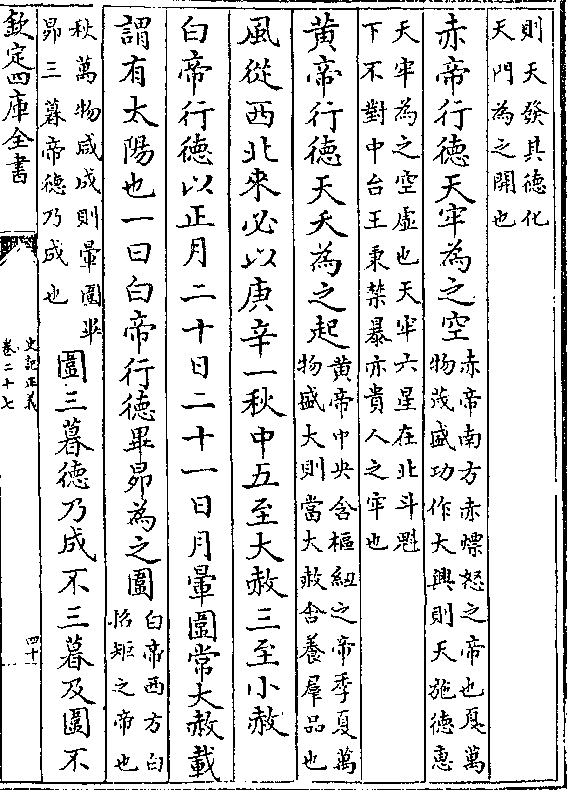 則天發其德化
天門為之開也
赤帝行德天牢為之空
赤帝南方赤熛怒之帝也夏萬
物茂盛功作大興則天施德惠
天牢為之空虛也天牢六星在北斗魁
下不對中台主秉禁暴亦貴人之牢也
黃帝行德天夭為之起
黃帝中央含樞紐之帝季夏萬
物盛大則當大赦含養羣品也
風從西北來必以庚辛一秋中五至大赦三至小赦
白帝行德以正月二十日二十一日月暈圍常大赦載
謂有太陽也一曰白帝行德畢昴為之圍
白帝西方白
招矩之帝也
秋萬物咸成則暈圍畢
昴三暮帝德乃成也
圍三暮德乃成不三暮及圍不
欽定四庫全書
史記正義
卷二十七
四十